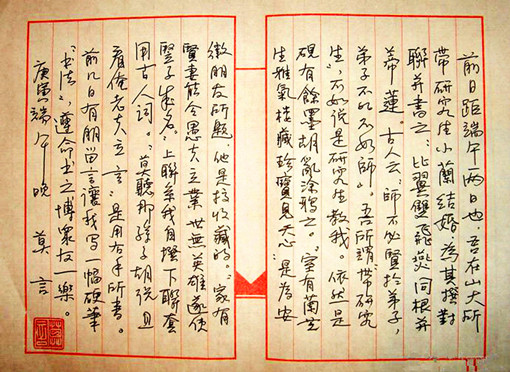 前日距端午兩日也,吾在山大所
帶研究生小蘭結婚,為其撰對
聯并書之:比翼雙飛燕,同根并
蒂蓮。古人云:師不必賢於弟子,
弟子不必不如師。吾所謂带研究
生,不如说是研究生教我。依然是
硯有餘墨胡亂涂鴉之。"室有蘭芝
生雅氣,楼藏珍寶見天心"是為安
徽朋友所題,他是搞收藏的。"家有
賢妻能令愚夫立業,世無英雄遂使
豎子成名"上聯系我自撰,下聯套
用古人詞。"莫聽那孫子胡说,且
看俺老夫立言"是用右手所書。
前几日有朋留言讓我写一幅硬筆
"书法",遵命书之,博衆友一樂。
庚寅端午晚 莫言